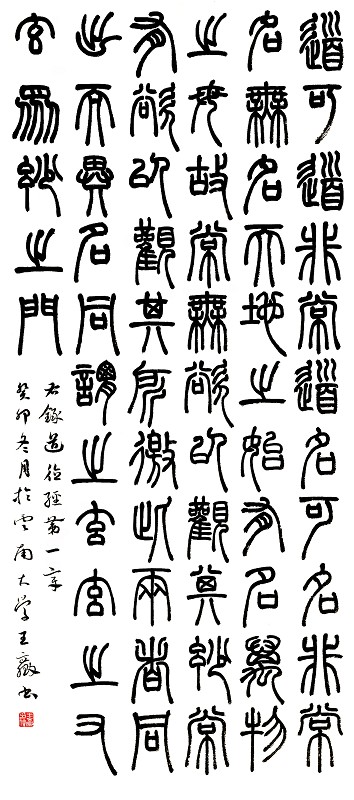 道可道非常道名可名非常
名無名天地之始有名萬物
之母故常無欲以觀其妙常
有欲以觀其所徼此兩者同
出而異名同謂之玄玄之又
玄眾妙之門
右錄道德經第一章
癸卯冬月於云南大学王書